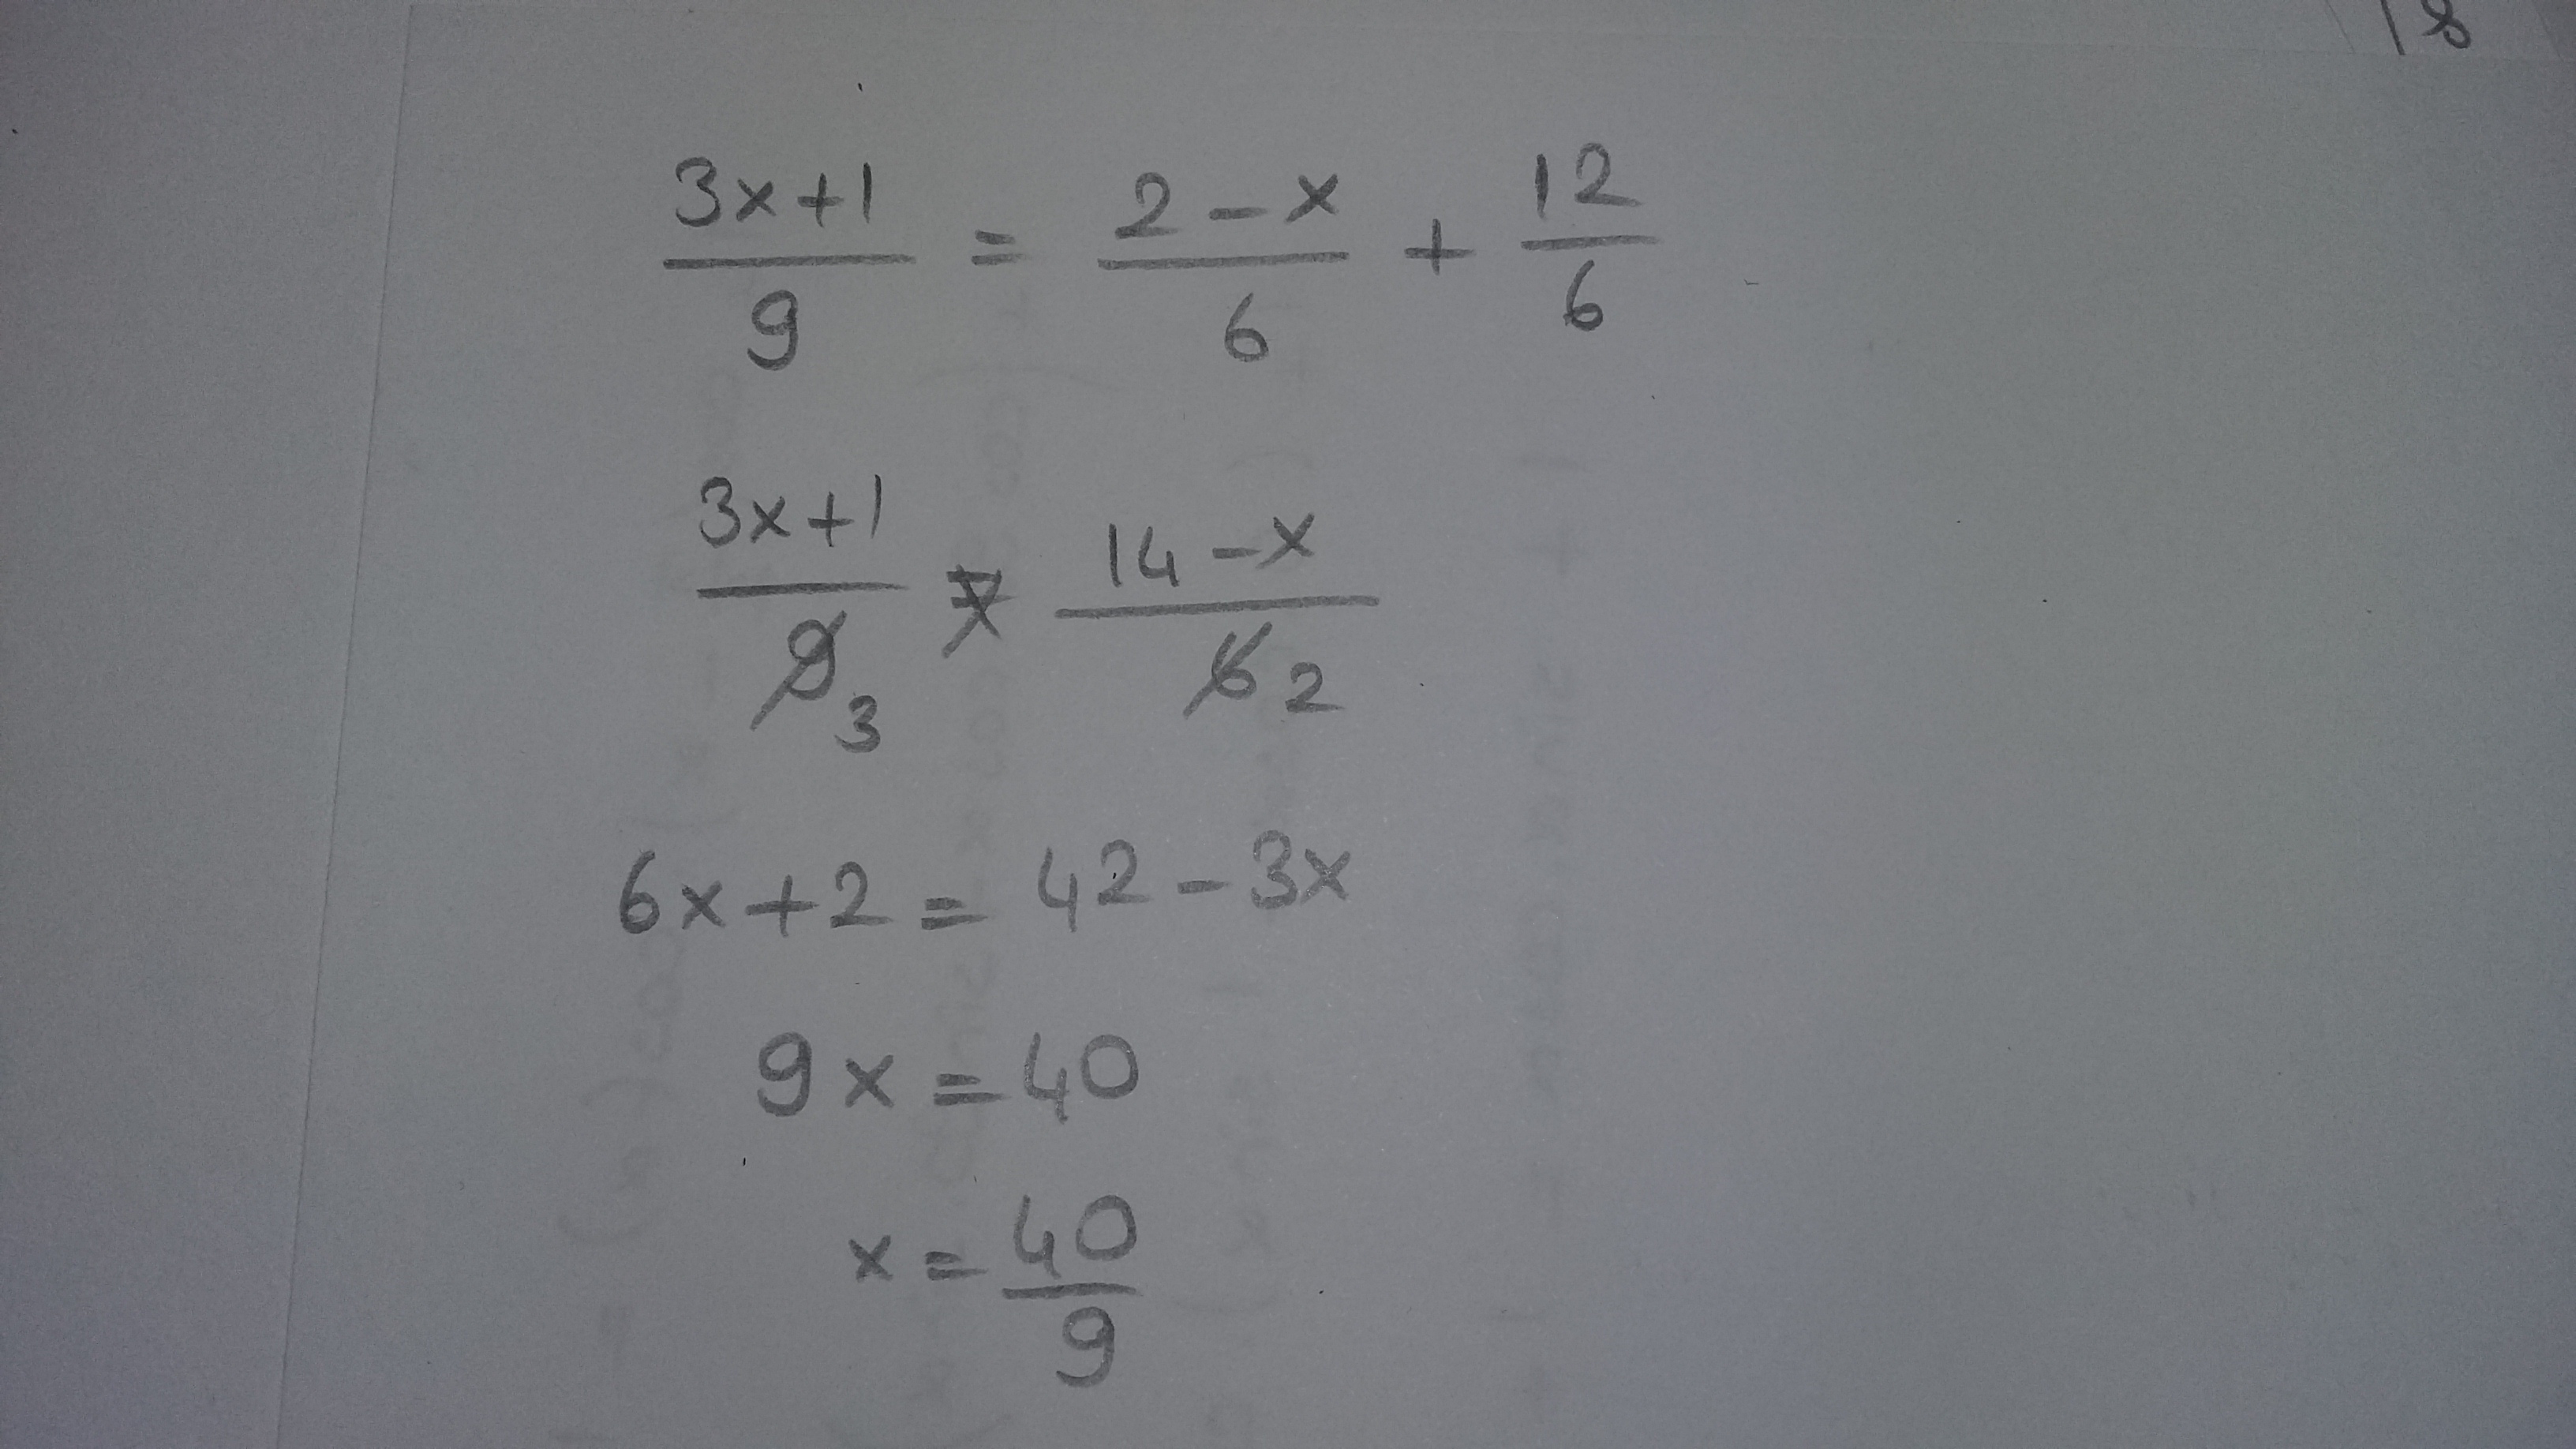 18
3x+1/9 = 2-x/6 + 12/6
3x+1/9 3 = 14-x/6 2
6x+2 = 42-3x
9x = 40
x = 40/9